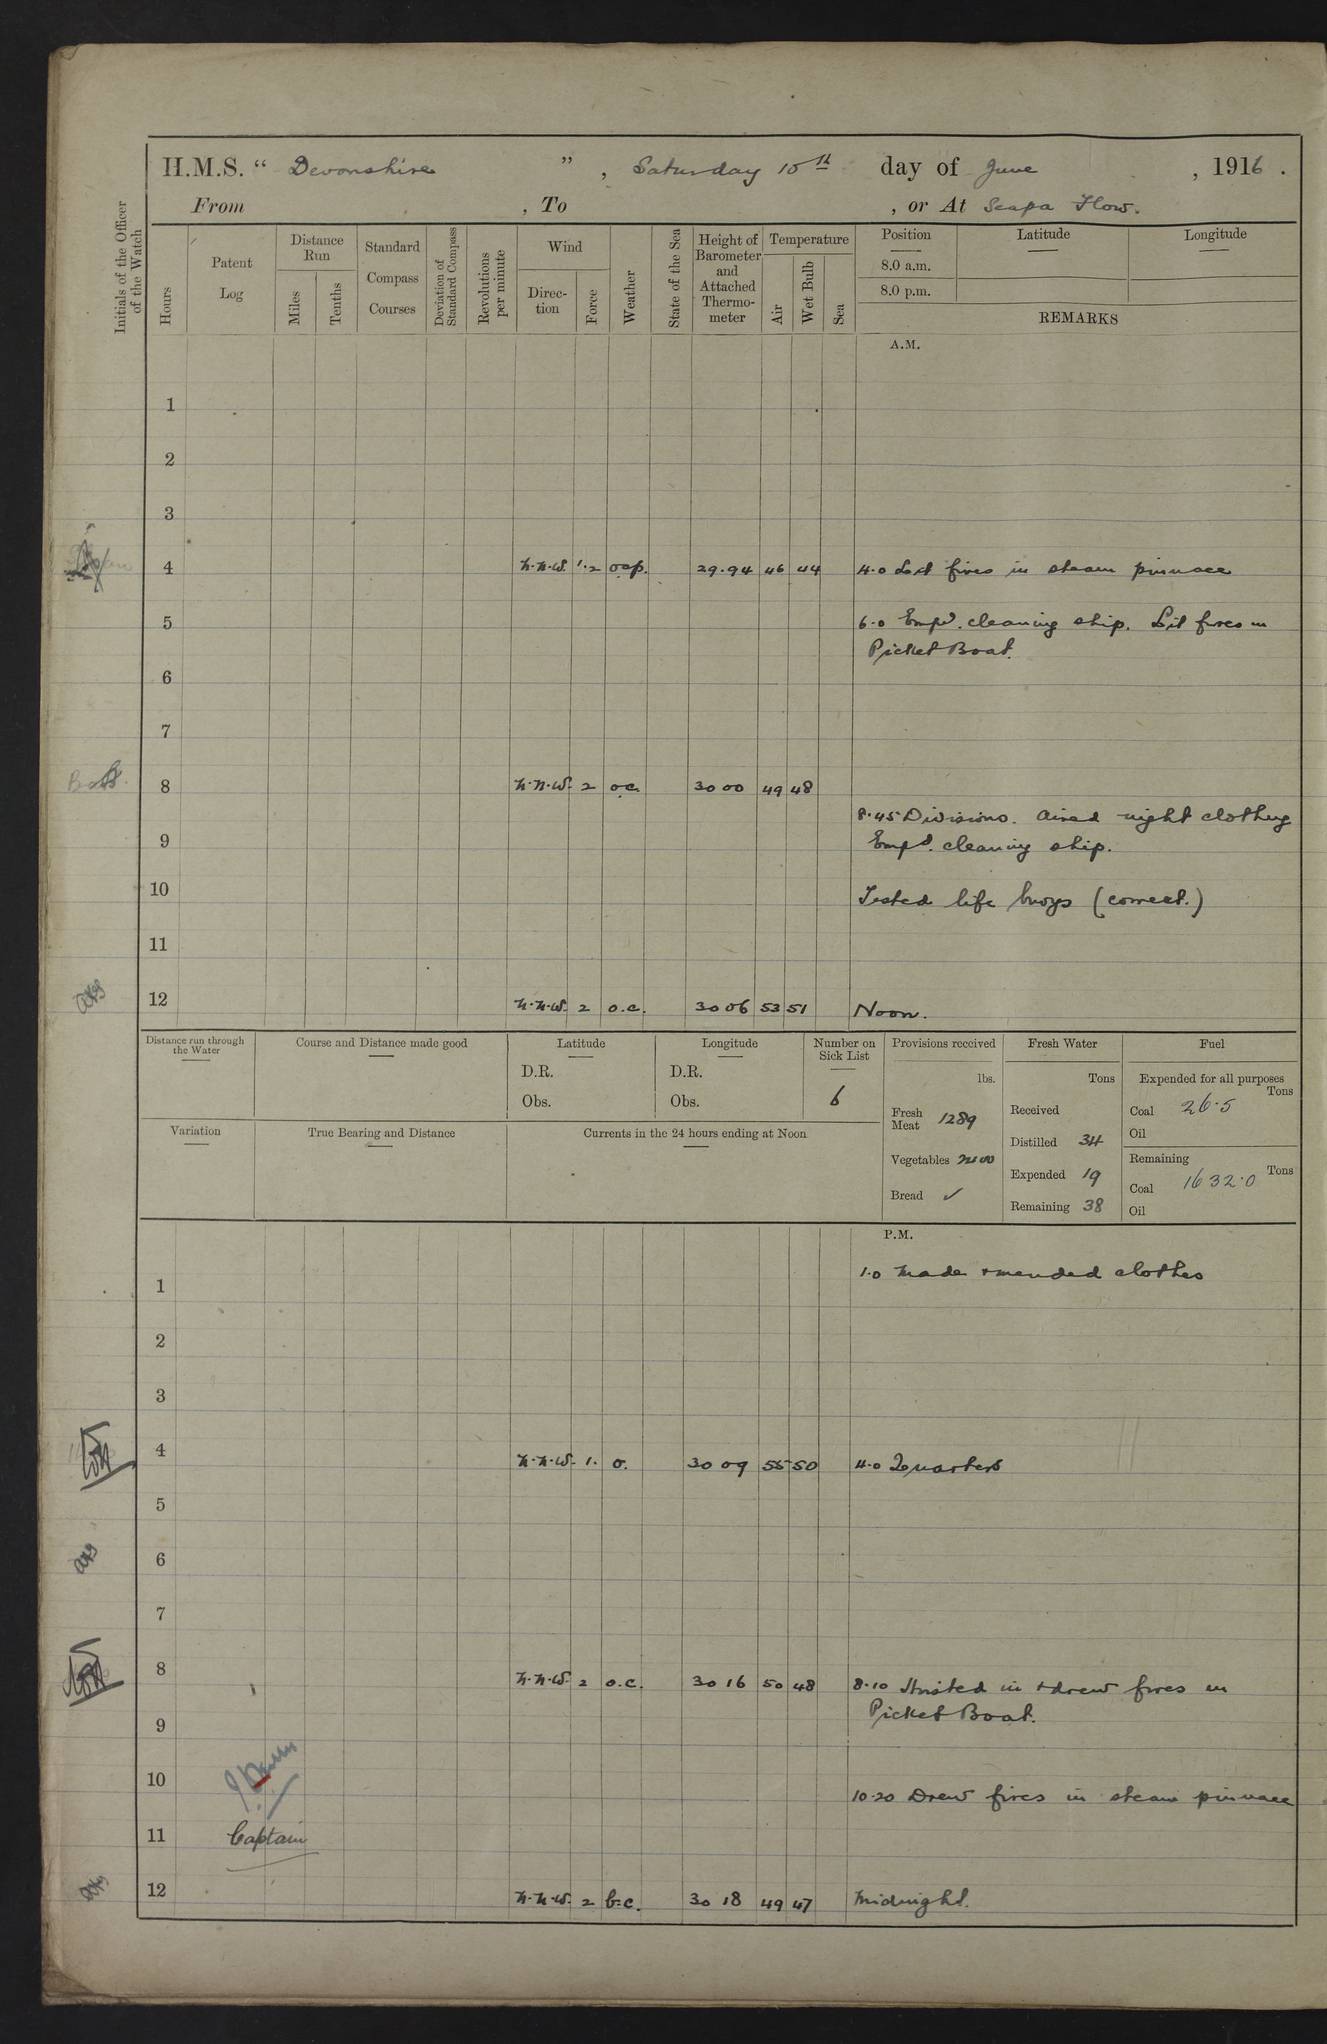 H.M.S. “ Devonshire ” , Saturday 10th day of June , 1916 .
From , To , or At Scapa Flow.
Initials of the Officer of the Watch
Hours
Patent Log
Distance Run
Miles
Tenths
Standard Compass Courses
Deviation of Standard Compass
Revolutions per minute
Wind
Direc-tion
Force
Weather
State of the Sea
Height of Barometer and Attached Thermo-meter
Temperature
Air
Wet Bulb
Sea
Position Latitude Longitude
8.0 a.m.
8.0 p.m.
REMARKS
A.M.
1
2
3
4 N.N.W. 1.2 29.94 46 44 4.0 Lit fires in steam pinnace
5 6.0 Empd. cleaning ship. Lit fires in
Picket Boat.
6
7
8 N.N.W. 2 o.c. 30 00 49 48
8.45 Divisions. Aired night clothing
9 Empd. cleaning ship.
10 Tested life buoys (correct.)
11
12 N.N.W. 2 o.c. 30 06 53 51 Noon.
Distance run through the Water
Course and Distance made good
Latitude
D.R.
Obs.
Longitude
D.R.
Obs.
Number on Sick List
6
Variation
True Bearing and Distance
Currents in the 24 hours ending at Noon
Provisions received
lbs.
Fresh Meat 1289
Vegetables
Bread ✓
Fresh Water
Tons
Received
Distilled 34
Expended 19
Remaining 38
Fuel
Expended for all purposes
Tons
Coal 26.5
Oil
Remaining
Tons
Coal 1632.0
Oil
P.M.
1 1.0 Made & mended clothes
2
3
4 N.N.W. 1. o. 30 09 55 50 4.0 Quarters
5
6
7
8 N.N.W. 2 o.c. 30 16 50 48 8.10 Hoisted in & drew fires in
Picket Boat.
9
10 10.20 Drew fires in steam pinnace
11 Captain
12 N.N.W. 2 b.c. 30 18 49 47 Midnight.